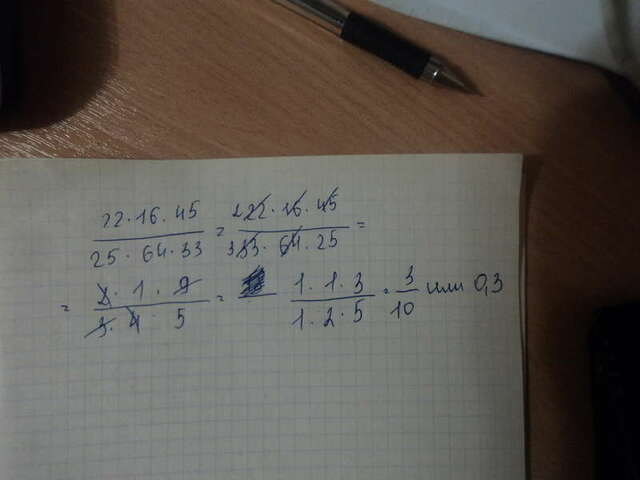 22·16·45 / 25·64·33 = 2 22·16·45 / 3 33·64·25 =
= 2·1·9 / 3·4·5 = 1·1·3 / 1·2·5 = 3/10 или 0,3